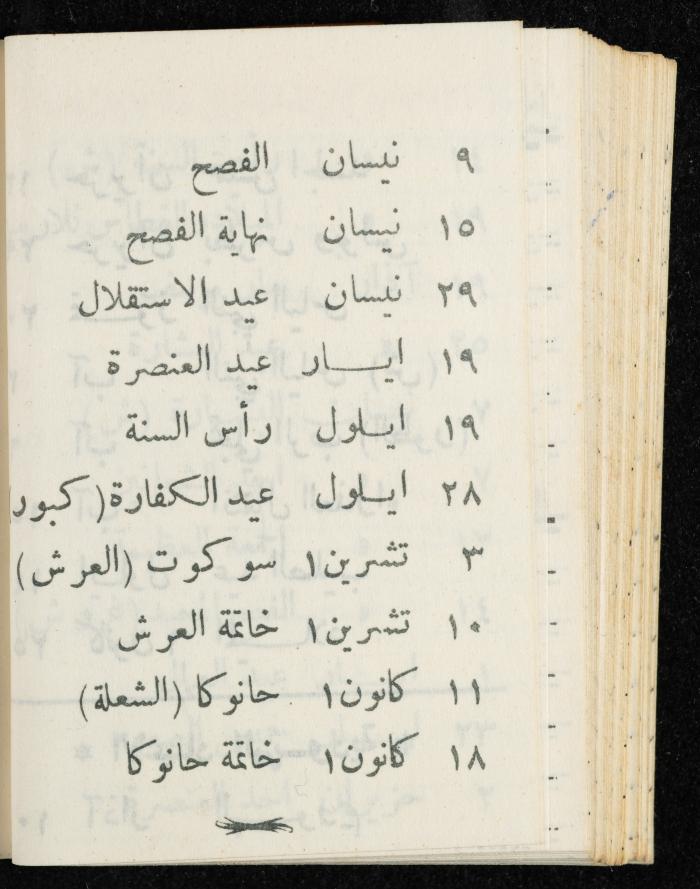 ٩ نيسان الفصح
١٥ نيسان نهاية الفصح
٢٩ نيسان عيد الاستقلال
١٩ ايـــار عيد العنصرة
١٩ ايـلول رأس السنة
٢٨ ايـلول عيد الكفارة (كبور)
٣ تشرين١ سوكوت (العرش)
١٠ تشرين١ خاتمة العرش
١١ كانون١ حانوكا (الشعلة)
١٨ كانون١ خاتمة حانوكا